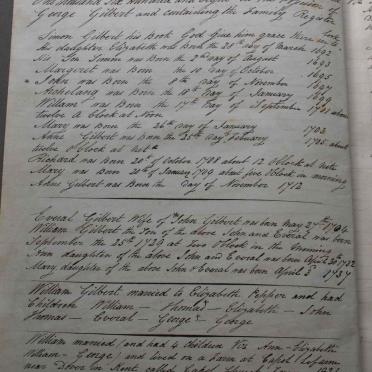 One thousand six hundred and eight in the possession of
George Gilbert and containing the Family Register
Simon Gilbert his Book God Give him grace there in to look
his daughter Elizabeth was Born the 28th day of March 1692
his Son Simon was Born the 2nd day of August 1693
Margaret was Born the 10 day of October 1695
John was Born the day of November 1697
was Born the 10th day of January 1699
William was Born the 17th day of September 1701 about
twelve A Clock at Noon
Mary was Born the 26th day of January 1702
Gilbert was Born the 25th day February 1705 about
twelve O Clock at
Richard was Born 20th of October 1708 about 12 O Clock at
Mary was Born 20th of January 1709 about five O Clock in morning
Gilbert was Born the day of November 1712
Everal Gilbert Wife of John Gilbert was born May 27th 1704
William Gilbert the Son of the above John and Everal was born
September the 25th 1729 at two O Clock in the morning
Ann daughter of the above John and Everal was born April 1732
Mary daughter of the above John & Everal was born April 8 1737
William Gilbert married to Elizabeth Pepper and had
Children William - Thomas - Elizabeth - John
Thomas - Everal - George - George
William married (and had 4 Children Viz Ann - Elizabeth
William - George) and lived on a Farm at Capel
near Dover in Kent called Capel Church Farm